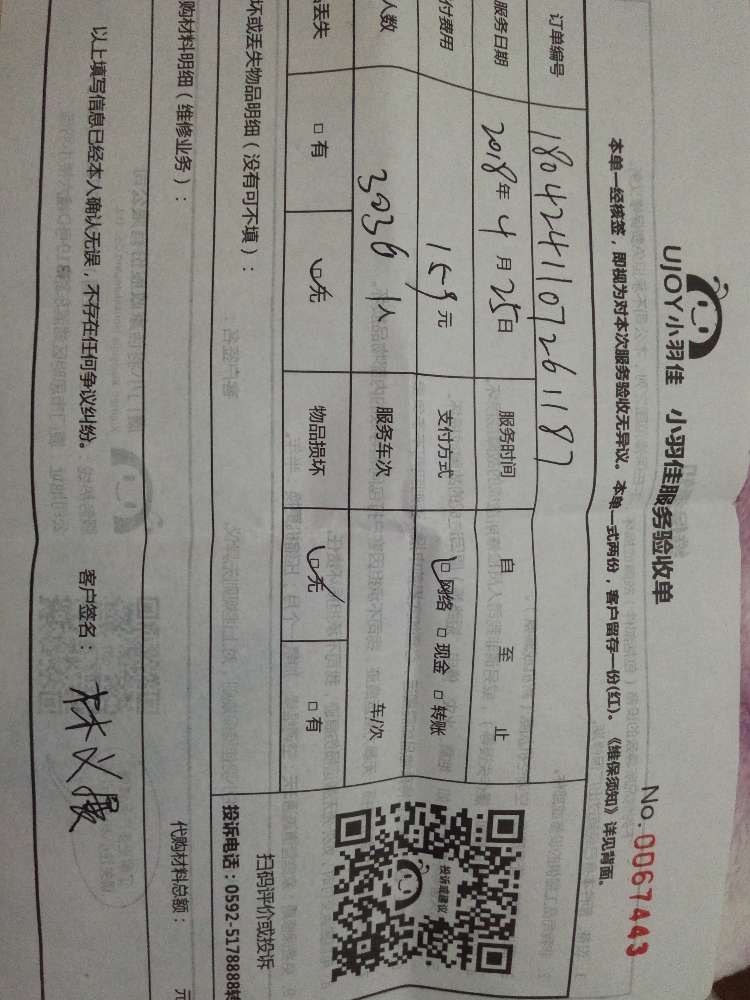 UJOY小羽佳 小羽佳服务验收单
No.0067443
本单一经核签，即视为对本次服务验收无异议。本单一式两份，客户留存一份(红)。《维保须知》详见背面。
订单编号 1804241107261187
服务日期 2018年4月25日 服务时间 自 至 止
付费用 159元 支付方式 □网络 □现金 □转账
人数 3036 1人 服务车次 车/次
丢失 □有 □无 物品损坏 □无 □有
坏或丢失物品明细（没有可不填）：
投诉或建议
扫码评价或投诉
投诉电话：0592-5178888转
购材料明细（维修业务）：
代购材料总额： 元
以上填写信息已经本人确认无误，不存在任何争议纠纷。 客户签名： 林义展